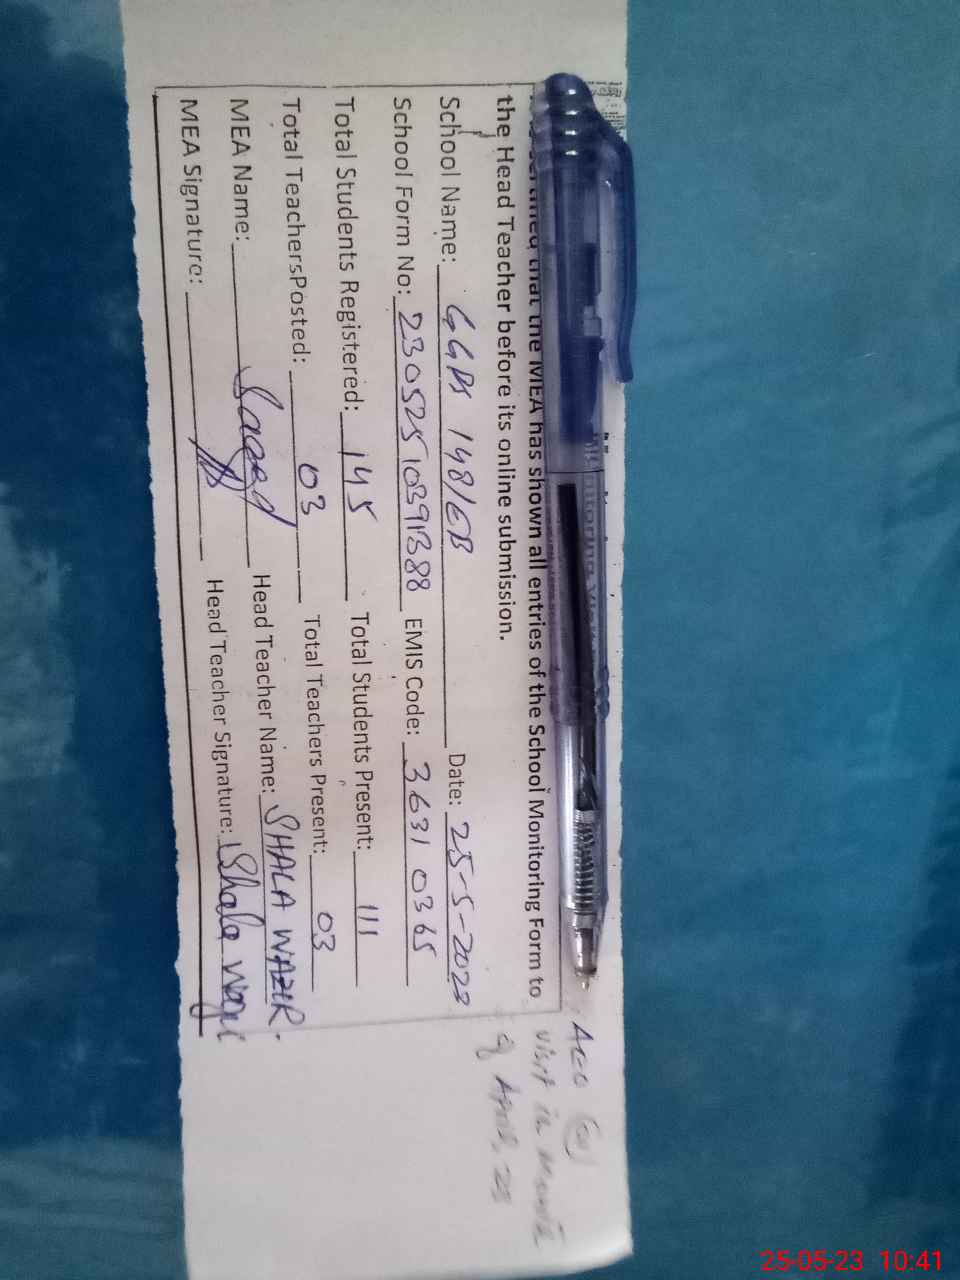 that the MEA has shown all entries of the School Monitoring Form to
the Head Teacher before its online submission.
School Name: GGPS 148/EB Date: 25-5-2023
School Form No: 23052510391388 EMIS Code: 36310365
Total Students Registered: 145 Total Students Present: 111
Total TeachersPosted: 03 Total Teachers Present: 03
MEA Name: Saeed Head Teacher Name: SHALA WAZIR
MEA Signature: Head Teacher Signature: Shala Wazir
AEO
visit in Month
of April, 23
25-05-23 10:41